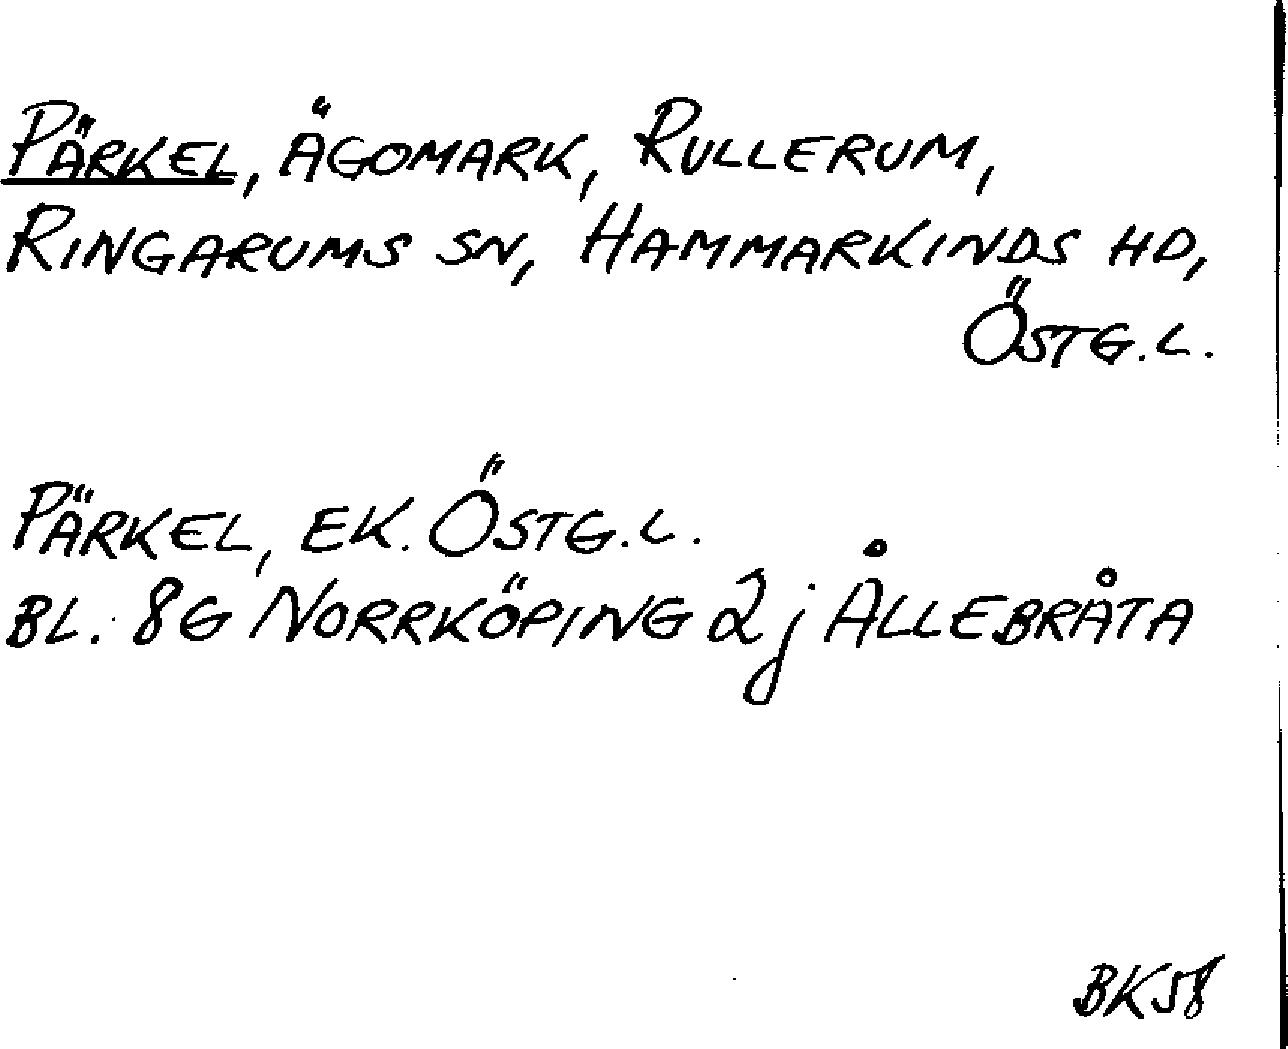 PÄRKEL, ÄGOMARK, RULLERUM,
RINGARUMS SN, HAMMARKINDS HD,
ÖSTG.L.
PÄRKEL, EK. ÖSTG.L.
BL. 8G NORRKÖPING 2j ÅLLEBRÅTA
BK58